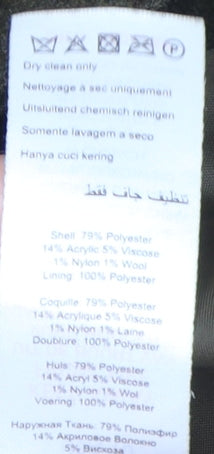 Dry clean only
Nettoyage a sec uniquement
Uitsluitend chemisch reinigen
Somente lavagem a seco
Hanya cuci kering
تنظيف جاف فقط
Shell: 79% Polyester
14% Acrylic 5% Viscose
1% Nylon 1% Wool
Lining: 100% Polyester
Coquille: 79% Polyester
14% Acrylique 5% Viscose
1% Nylon 1% Laine
Doublure: 100% Polyester
Huls: 79% Polyester
14% Acryl 5% Viscose
1% Nylon 1% Wol
Voering: 100% Polyester
Наружная Ткань: 79% Полиэфир
14% Акриловое Волокно
5% Вискоза